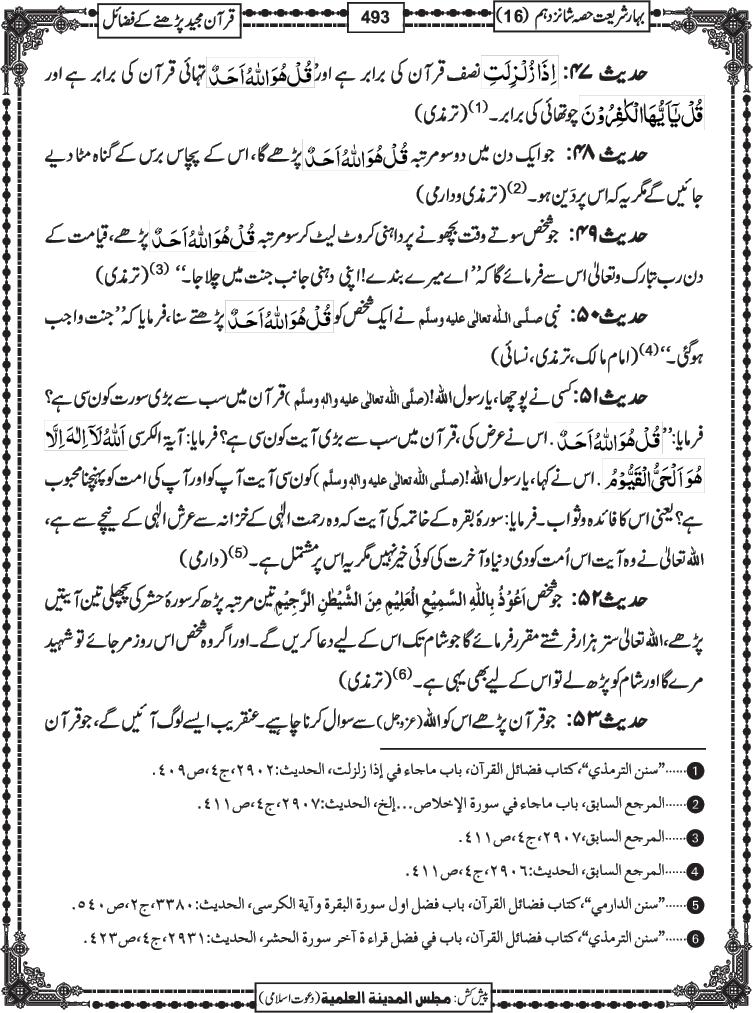 بہار شریعت حصہ شانزدہم (16)
493
قرآن مجید پڑھنے کے فضائل
حدیث ۴۷: اِذَا زُلْزِلَتِ نصف قرآن کی برابر ہے اور قُلْ هُوَ اللهُ اَحَدٌ تہائی قرآن کی برابر ہے اور
قُلْ یٰۤاَیُّهَا الْكٰفِرُوْنَ چوتھائی کی برابر۔(1) (ترمذی)
حدیث ۴۸: جو ایک دن میں دو سو مرتبہ قُلْ هُوَ اللهُ اَحَدٌ پڑھے گا، اس کے پچاس برس کے گناہ مٹا دیے
جائیں گے مگر یہ کہ اس پر دَین ہو۔(2) (ترمذی و دارمی)
حدیث ۴۹: جو شخص سوتے وقت بچھونے پر داہنی کروٹ لیٹ کر سو مرتبہ قُلْ هُوَ اللهُ اَحَدٌ پڑھے، قیامت کے
دن رب تبارک وتعالیٰ اس سے فرمائے گا کہ ’’اے میرے بندے! اپنی دہنی جانب جنت میں چلا جا۔‘‘ (3) (ترمذی)
حدیث ۵۰: نبی صلَّی اللہ تعالٰی علیہ وسلَّم نے ایک شخص کو قُلْ هُوَ اللهُ اَحَدٌ پڑھتے سنا، فرمایا کہ ’’جنت واجب
ہوگئی۔‘‘(4) (امام مالک، ترمذی، نسائی)
حدیث ۵۱: کسی نے پوچھا، یارسول اللہ! (صلَّی اللہ تعالٰی علیہ واٰلہٖ وسلَّم) قرآن میں سب سے بڑی سورت کون سی ہے؟
فرمایا: ’’قُلْ هُوَ اللهُ اَحَدٌ . اس نے عرض کی، قرآن میں سب سے بڑی آیت کون سی ہے؟ فرمایا: آیۃ الکرسی اَللهُ لَاۤ اِلٰهَ اِلَّا
هُوَ اَلْحَیُّ الْقَیُّوْمُ . اس نے کہا، یارسول اللہ! (صلَّی اللہ تعالٰی علیہ واٰلہٖ وسلَّم) کون سی آیت آپ کو اور آپ کی امت کو پہنچنا محبوب
ہے؟ یعنی اس کا فائدہ وثواب۔ فرمایا: سورۂ بقرہ کے خاتمہ کی آیت کہ وہ رحمت الٰہی کے خزانہ سے عرش الٰہی کے نیچے سے ہے،
اللہ تعالیٰ نے وہ آیت اس اُمت کو دی دنیا و آخرت کی کوئی خیر نہیں مگر یہ اس پر مشتمل ہے۔(5) (دارمی)
حدیث ۵۲: جو شخص اَعُوْذُ بِاللهِ السَّمِیْعِ الْعَلِیْمِ مِنَ الشَّیْطٰنِ الرَّجِیْمِ تین مرتبہ پڑھ کر سورۂ حشر کی پچھلی تین آیتیں
پڑھے، اللہ تعالیٰ ستر ہزار فرشتے مقرر فرمائے گا جو شام تک اس کے لیے دعا کریں گے۔ اور اگر وہ شخص اس روز مرجائے تو شہید
مرے گا اور شام کو پڑھ لے تو اس کے لیے بھی یہی ہے۔(6) (ترمذی)
حدیث ۵۳: جو قرآن پڑھے اس کو اللہ (عزوجل) سے سوال کرنا چاہیے۔ عنقریب ایسے لوگ آئیں گے، جو قرآن
1 ......”سنن الترمذي“، كتاب فضائل القرآن، باب ماجاء في إذا زلزلت، الحديث: ٢٩٠٢، ج٤، ص٤٠٩.
2 ......المرجع السابق، باب ماجاء في سورة الإخلاص...إلخ، الحديث: ٢٩٠٧، ج٤، ص٤١١.
3 ......المرجع السابق، ٢٩٠٧، ج٤، ص٤١١.
4 ......المرجع السابق، الحديث: ٢٩٠٦، ج٤، ص٤١١.
5 ......”سنن الدارمي“، كتاب فضائل القرآن، باب فضل اول سورة البقرة وآية الكرسى، الحديث: ٣٣٨٠، ج٢، ص٥٤٠.
6 ......”سنن الترمذي“، كتاب فضائل القرآن، باب في فضل قراءة آخر سورة الحشر، الحديث: ٢٩٣١، ج٤، ص٤٢٣.
پیش کش: مجلس المدینة العلمیة (دعوت اسلامی)